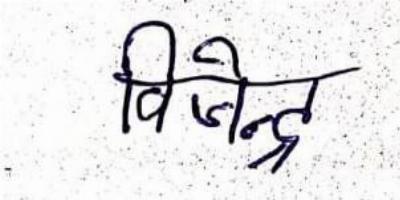 विजेन्द्र